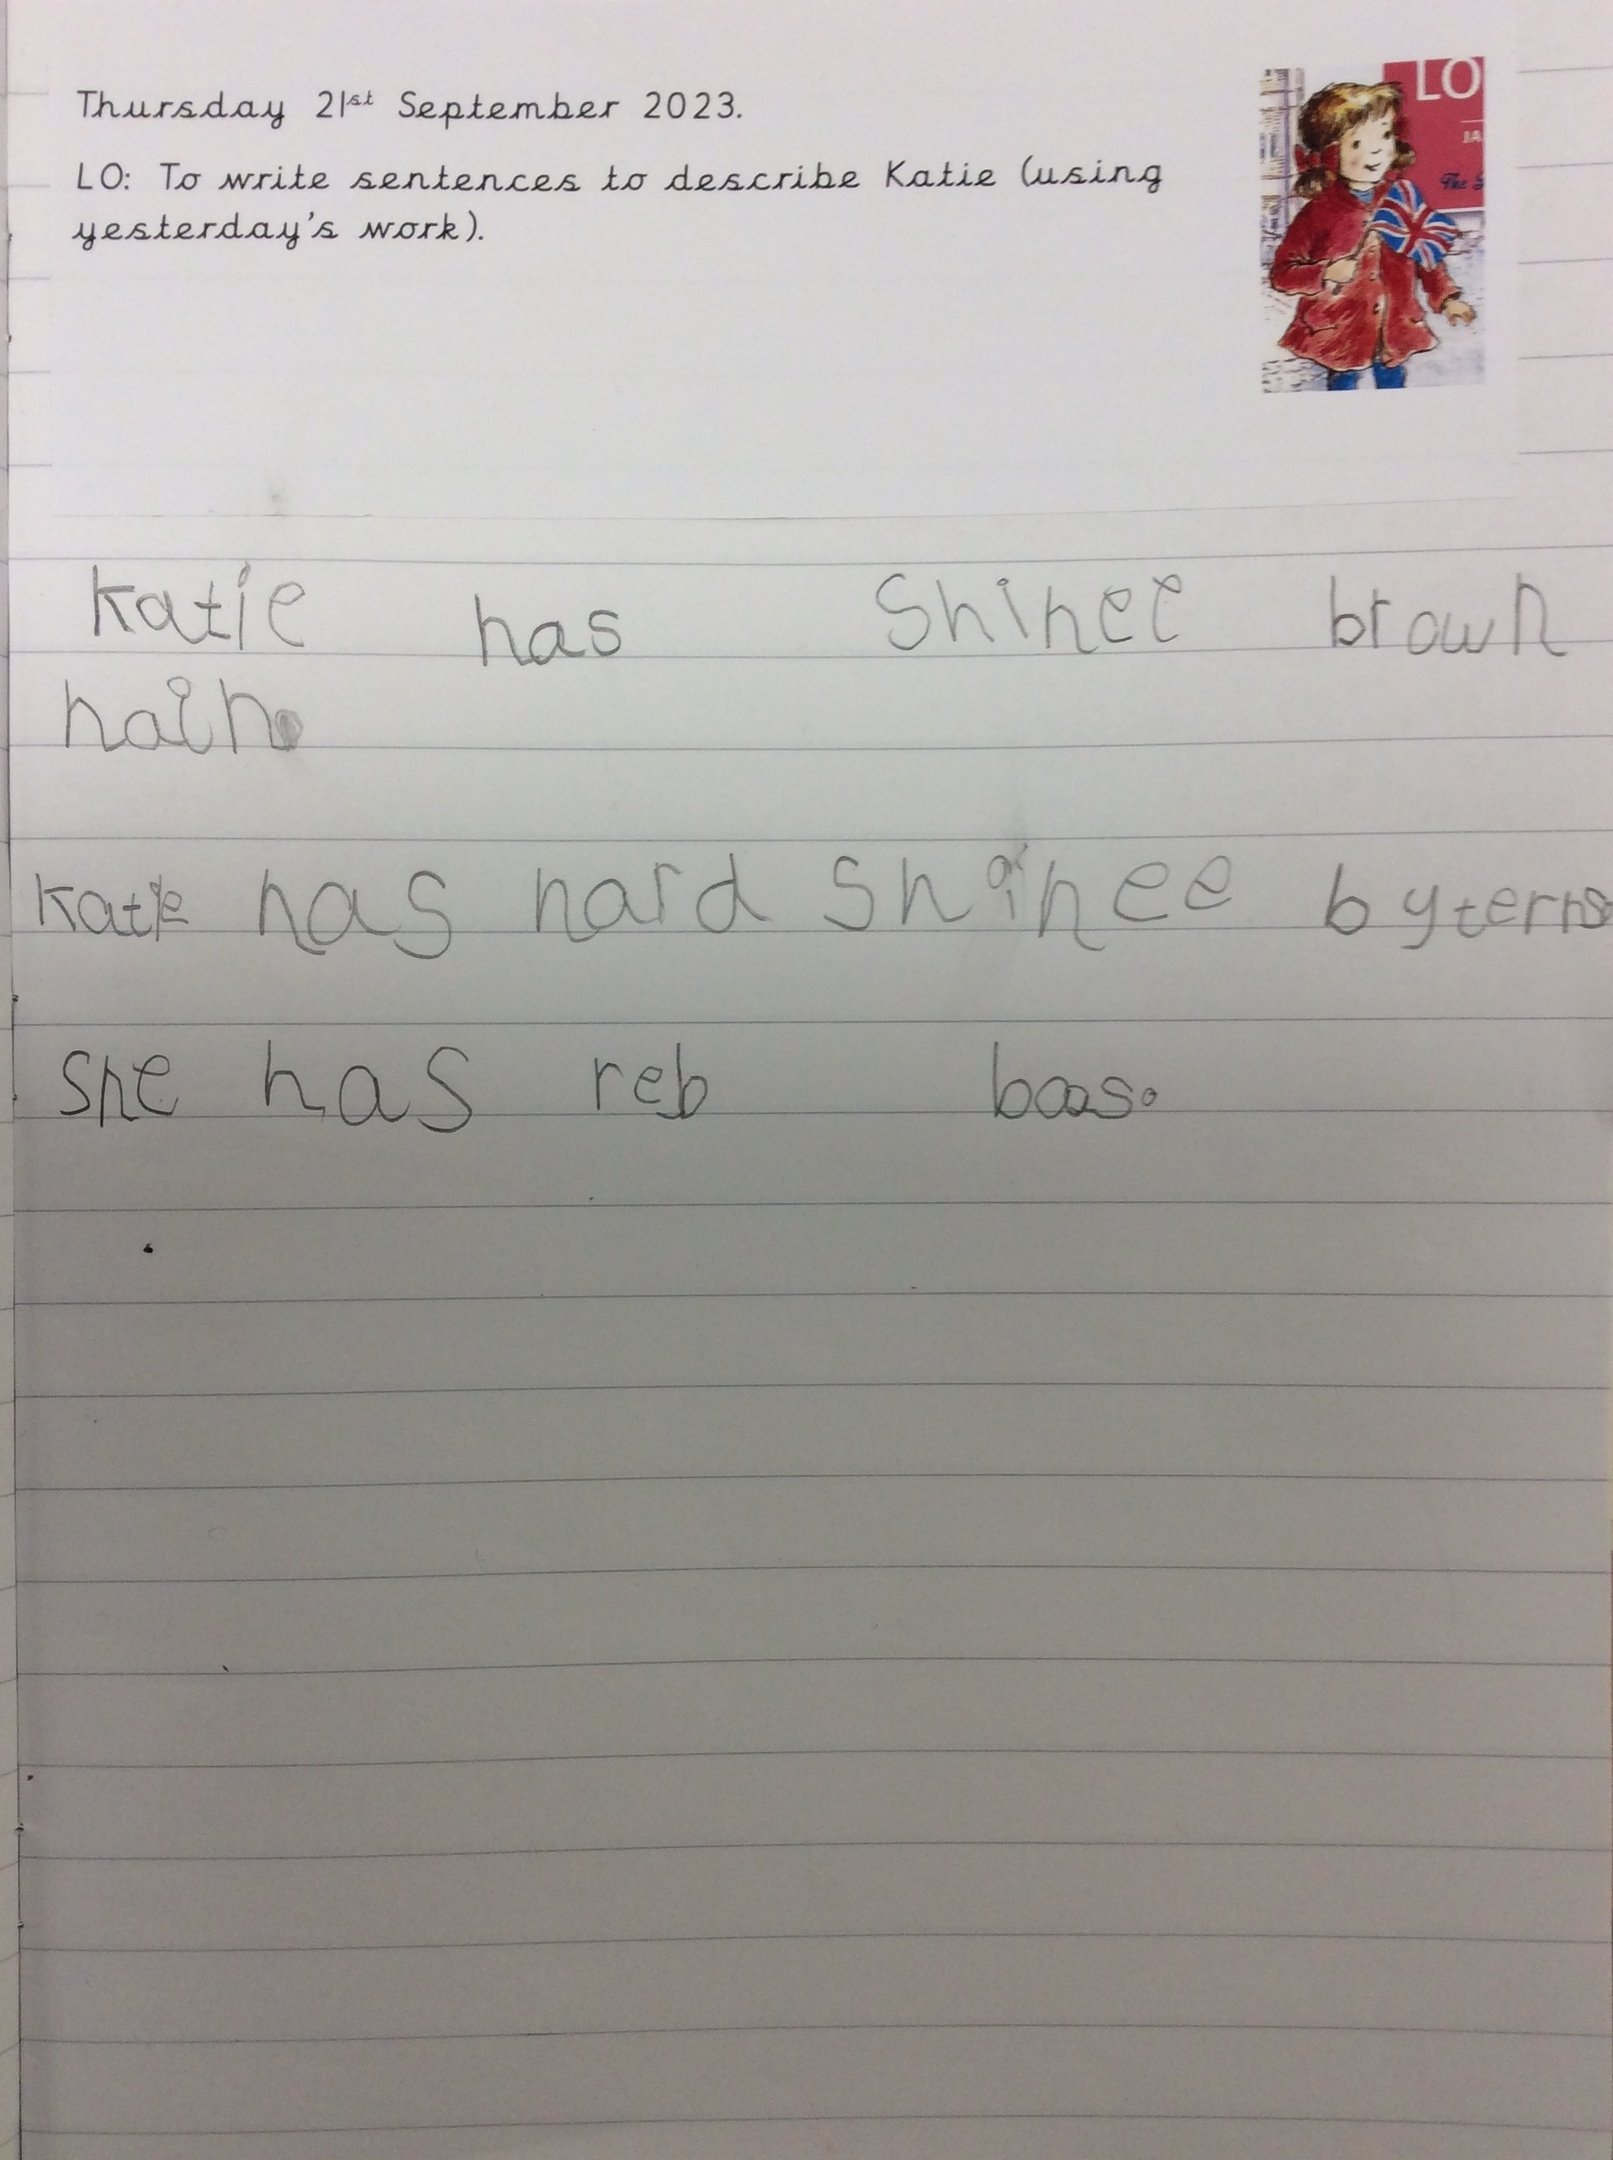 Thursday 21st September 2023.
LO: To write sentences to describe Katie (using
yesterday's work).
LO
JA
The S
Katie has Shinee brown
hair.
Katie has hard Shinee byterns
She has reb boas.